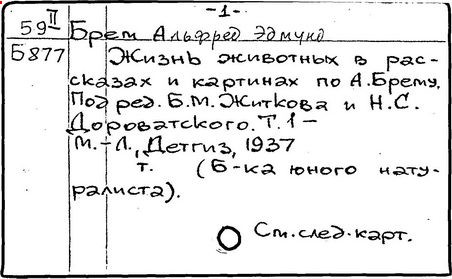 -1-
59 II Брем Альфред Эдмунд
Б877 Жизнь животных в рас-
сказах и картинах по А.Брему.
Под ред. Б.М. Житкова и Н.С.
Дороватского. Т. 1 –
М.-Л., Детгиз, 1937
т. (Б-ка юного нату-
ралиста).
См. след. карт.